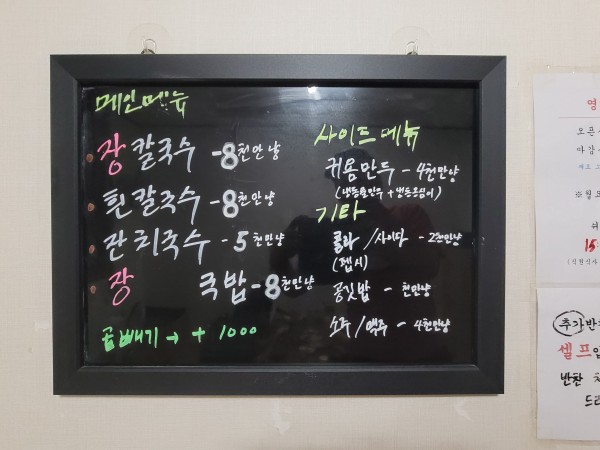 메인메뉴
장 칼국수 - 8천만냥
흰칼국수 - 8천만냥
잔치국수 - 5천만냥
장 국밥 - 8천만냥
곱빼기 → + 1000
사이드메뉴
귀용만두 - 4천만냥
기타
콜라 / 사이다 - 2천만냥
(펩시)
공깃밥 - 천만냥
소주 / 맥주 - 4천만냥
영
오픈
마감
※월요
15
추가반
셀프
반찬
드리